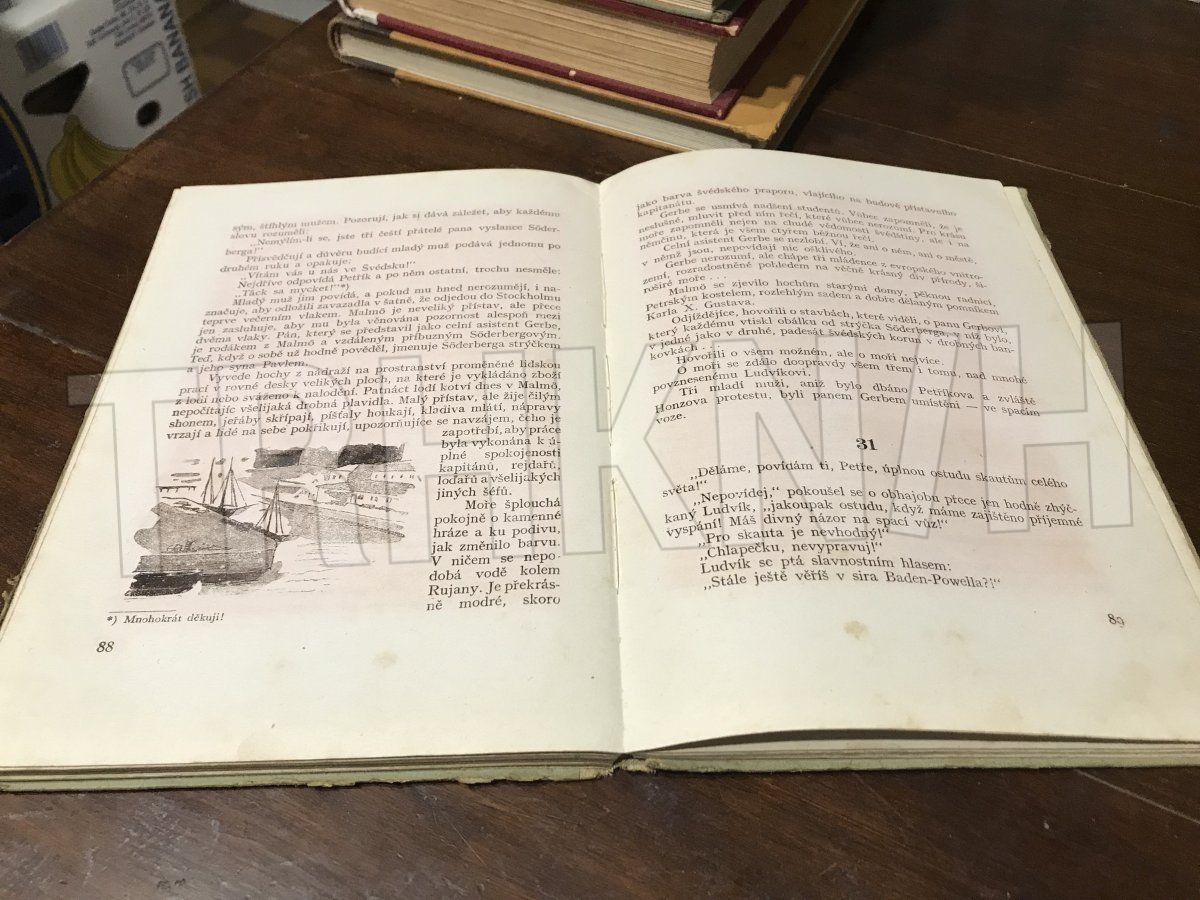 sým, štíhlým mužem. Pozorují, jak si dává záležet, aby každému
slovu rozuměli.
„Nemýlím-li se, jste tři čeští přátelé pana vyslance Söder-
berga?“
Přisvědčují a důvěru budící mladý muž podává jednomu po
druhém ruku a opakuje:
„Vítám vás u nás ve Švédsku!“
Nejdříve odpovídá Petřík a po něm ostatní, trochu nesměle:
„Täck sa mycket!“*)
Mladý muž jim povídá, a pokud mu hned nerozumějí, i na-
značuje, aby odložili zavazadla v šatně, že odjedou do Stockholmu
teprve večerním vlakem. Malmö je neveliký přístav, ale přece
jen zasluhuje, aby mu byla věnována pozornost alespoň mezi
dvěma vlaky. Pán, který se představil jako celní asistent Gerbe,
je rodákem z Malmö a vzdáleným příbuzným Söderbergovým.
Teď, když o sobě už hodně pověděl, jmenuje Söderberga strýčkem
a jeho syna Pavlem.
Vyvede hochy z nádraží na prostranství proměněné lidskou
prací v rovné desky velikých ploch, na které je vykládáno zboží
z lodí nebo sváženo k nalodění. Patnáct lodí kotví dnes v Malmö,
nepočítajíc všelijaká drobná plavidla. Malý přístav, ale žije čilým
shonem, jeřáby skřípají, píšťaly houkají, kladiva mlátí, nápravy
vrzají a lidé na sebe pokřikují, upozorňujíce se navzájem, čeho je
zapotřebí, aby práce
byla vykonána k ú-
plné spokojenosti
kapitánů, rejdařů,
loďařů a všelijakých
jiných šéfů.
Moře šplouchá
pokojně o kamenné
hráze a ku podivu,
jak změnilo barvu.
V ničem se nepo-
dobá vodě kolem
Rujany. Je překrás-
ně modré, skoro
*) Mnohokrát děkuji!
88
jako barva švédského praporu, vlajícího na budově přístavního
kapitanátu.
Gerbe se usmívá nadšení studentů. Vůbec zapomněli, že je
neslušné, mluvit před ním řečí, které vůbec nerozumí. Pro krásu
moře zapomněli nejen na chudé vědomosti švédštiny, ale i na
němčinu, která je všem čtyřem běžnou řečí.
Celní asistent Gerbe se nezlobí. Ví, že ani o něm, ani o městě,
v němž jsou, nepovídají nic ošklivého.
Gerbe nerozumí, ale chápe tři mládence z evropského vnitro-
zemí, rozradostněné pohledem na věčně krásný div přírody, ši-
roširé moře . . .
Malmö se zjevilo hochům starými domy, pěknou radnicí,
Petrským kostelem, rozlehlým sadem a dobře dělaným pomníkem
Karla X. Gustava.
Odjíždějíce, hovořili o stavbách, které viděli, o panu Gerbovi,
který každému vtiskl obálku od strýčka Söderberga, v níž bylo,
v jedné jako v druhé, padesát švédských korun v drobných ban-
kovkách . . .
Hovořili o všem možném, ale o moři nejvíce.
O moři se zdálo doopravdy všem třem i tomu, nad mnohé
povznesenému Ludvíkovi.
Tři mladí muži, aniž bylo dbáno Petříkova a zvláště
Honzova protestu, byli panem Gerbem umístěni — ve spacím
voze.
31
„Děláme, povídám ti, Petře, úplnou ostudu skautům celého
světa!“
„Nepovídej,“ pokoušel se o obhajobu přece jen hodně zhýč-
kaný Ludvík, „jakoupak ostudu, když máme zajištěno příjemné
vyspání! Máš divný názor na spací vůz!“
„Pro skauta je nevhodný!“
„Chlapečku, nevypravuj!“
Ludvík se ptá slavnostním hlasem:
„Stále ještě věříš v sira Baden-Powella?!“
89
TRHKNIH